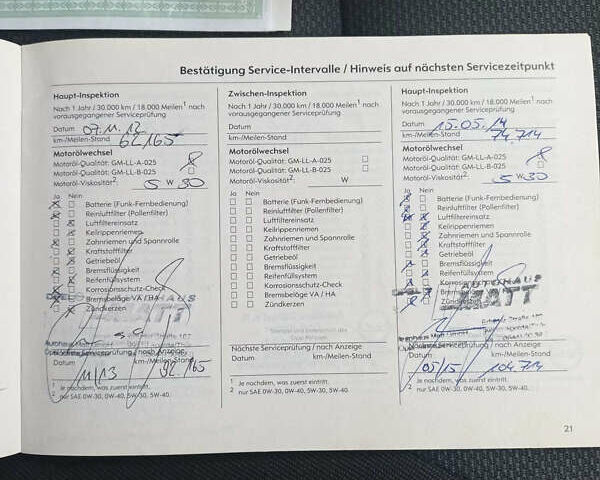 Bestätigung Service-Intervalle / Hinweis auf nächsten Servicezeitpunkt
Haupt-Inspektion
Nach 1 Jahr / 30.000 km / 18.000 Meilen¹ nach
vorausgegangener Serviceprüfung
Datum 07.11.12
km-/Meilen-Stand 62 165
Motorölwechsel
Motoröl-Qualität: GM-LL-A-025
Motoröl-Qualität: GM-LL-B-025
Motoröl-Viskosität²: 5 W 30
Ja Nein
Batterie (Funk-Fernbedienung)
Reinluftfilter (Pollenfilter)
Luftfiltereinsatz
Keilrippenriemen
Zahnriemen und Spannrolle
Kraftstofffilter
Getriebeöl
Bremsflüssigkeit
Reifenfüllsystem
Korrosionsschutz-Check
Bremsbeläge VA / HA
Zündkerzen
AUTOHAUS
MATT
Nächste Serviceprüfung / nach Anzeige
Datum km-/Meilen-Stand
11/13 92 165
¹ Je nachdem, was zuerst eintritt.
² nur SAE 0W-30, 0W-40, 5W-30, 5W-40.
Zwischen-Inspektion
Nach 1 Jahr / 30.000 km / 18.000 Meilen¹ nach
vorausgegangener Serviceprüfung
Datum
km-/Meilen-Stand
Motorölwechsel
Motoröl-Qualität: GM-LL-A-025
Motoröl-Qualität: GM-LL-B-025
Motoröl-Viskosität²: W
Ja Nein
Batterie (Funk-Fernbedienung)
Reinluftfilter (Pollenfilter)
Luftfiltereinsatz
Keilrippenriemen
Zahnriemen und Spannrolle
Kraftstofffilter
Getriebeöl
Bremsflüssigkeit
Reifenfüllsystem
Korrosionsschutz-Check
Bremsbeläge VA / HA
Zündkerzen
Nächste Serviceprüfung / nach Anzeige
Datum km-/Meilen-Stand
¹ Je nachdem, was zuerst eintritt.
² nur SAE 0W-30, 0W-40, 5W-30, 5W-40.
Haupt-Inspektion
Nach 1 Jahr / 30.000 km / 18.000 Meilen¹ nach
vorausgegangener Serviceprüfung
Datum 15.05.14
km-/Meilen-Stand 74 714
Motorölwechsel
Motoröl-Qualität: GM-LL-A-025
Motoröl-Qualität: GM-LL-B-025
Motoröl-Viskosität²: 5 W 30
Ja Nein
Batterie (Funk-Fernbedienung)
Reinluftfilter (Pollenfilter)
Luftfiltereinsatz
Keilrippenriemen
Zahnriemen und Spannrolle
Kraftstofffilter
Getriebeöl
Bremsflüssigkeit
Reifenfüllsystem
Korrosionsschutz-Check
Bremsbeläge VA / HA
Zündkerzen
AUTOHAUS
MATT
Nächste Serviceprüfung / nach Anzeige
Datum km-/Meilen-Stand
05/15 104 714
¹ Je nachdem, was zuerst eintritt.
² nur SAE 0W-30, 0W-40, 5W-30, 5W-40.
21